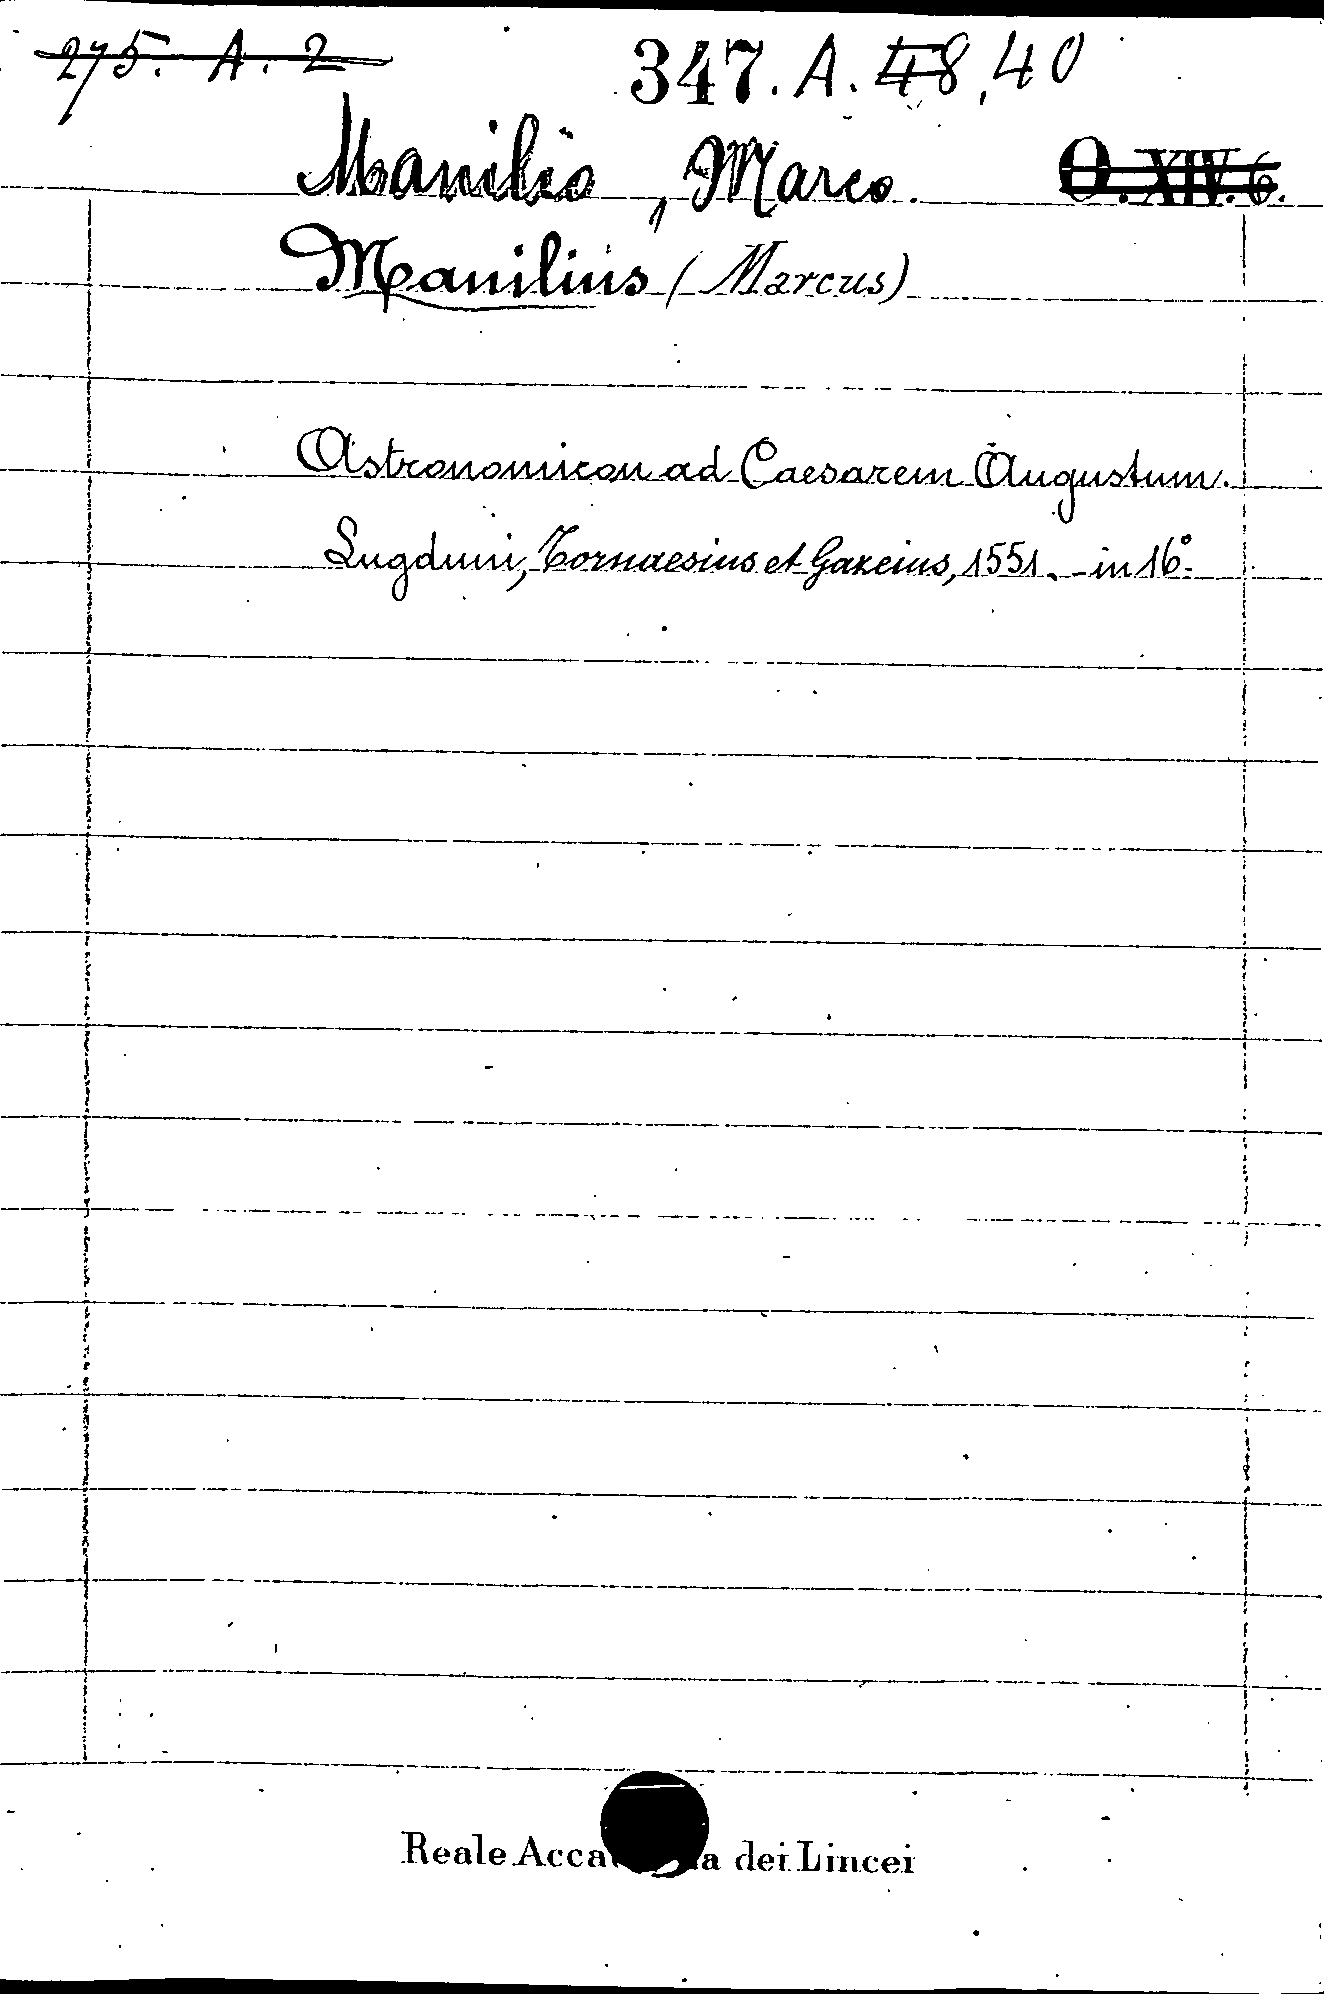 275. A. 2
347. A. 48, 40
Manilio, Marco.
O. XIV. 6.
Manilius (Marcus)
Astronomicon ad Caesarem Augustum.
Lugduni, Tornaesius et Gazeius, 1551. - in 16°.
Reale Acca a dei Lincei